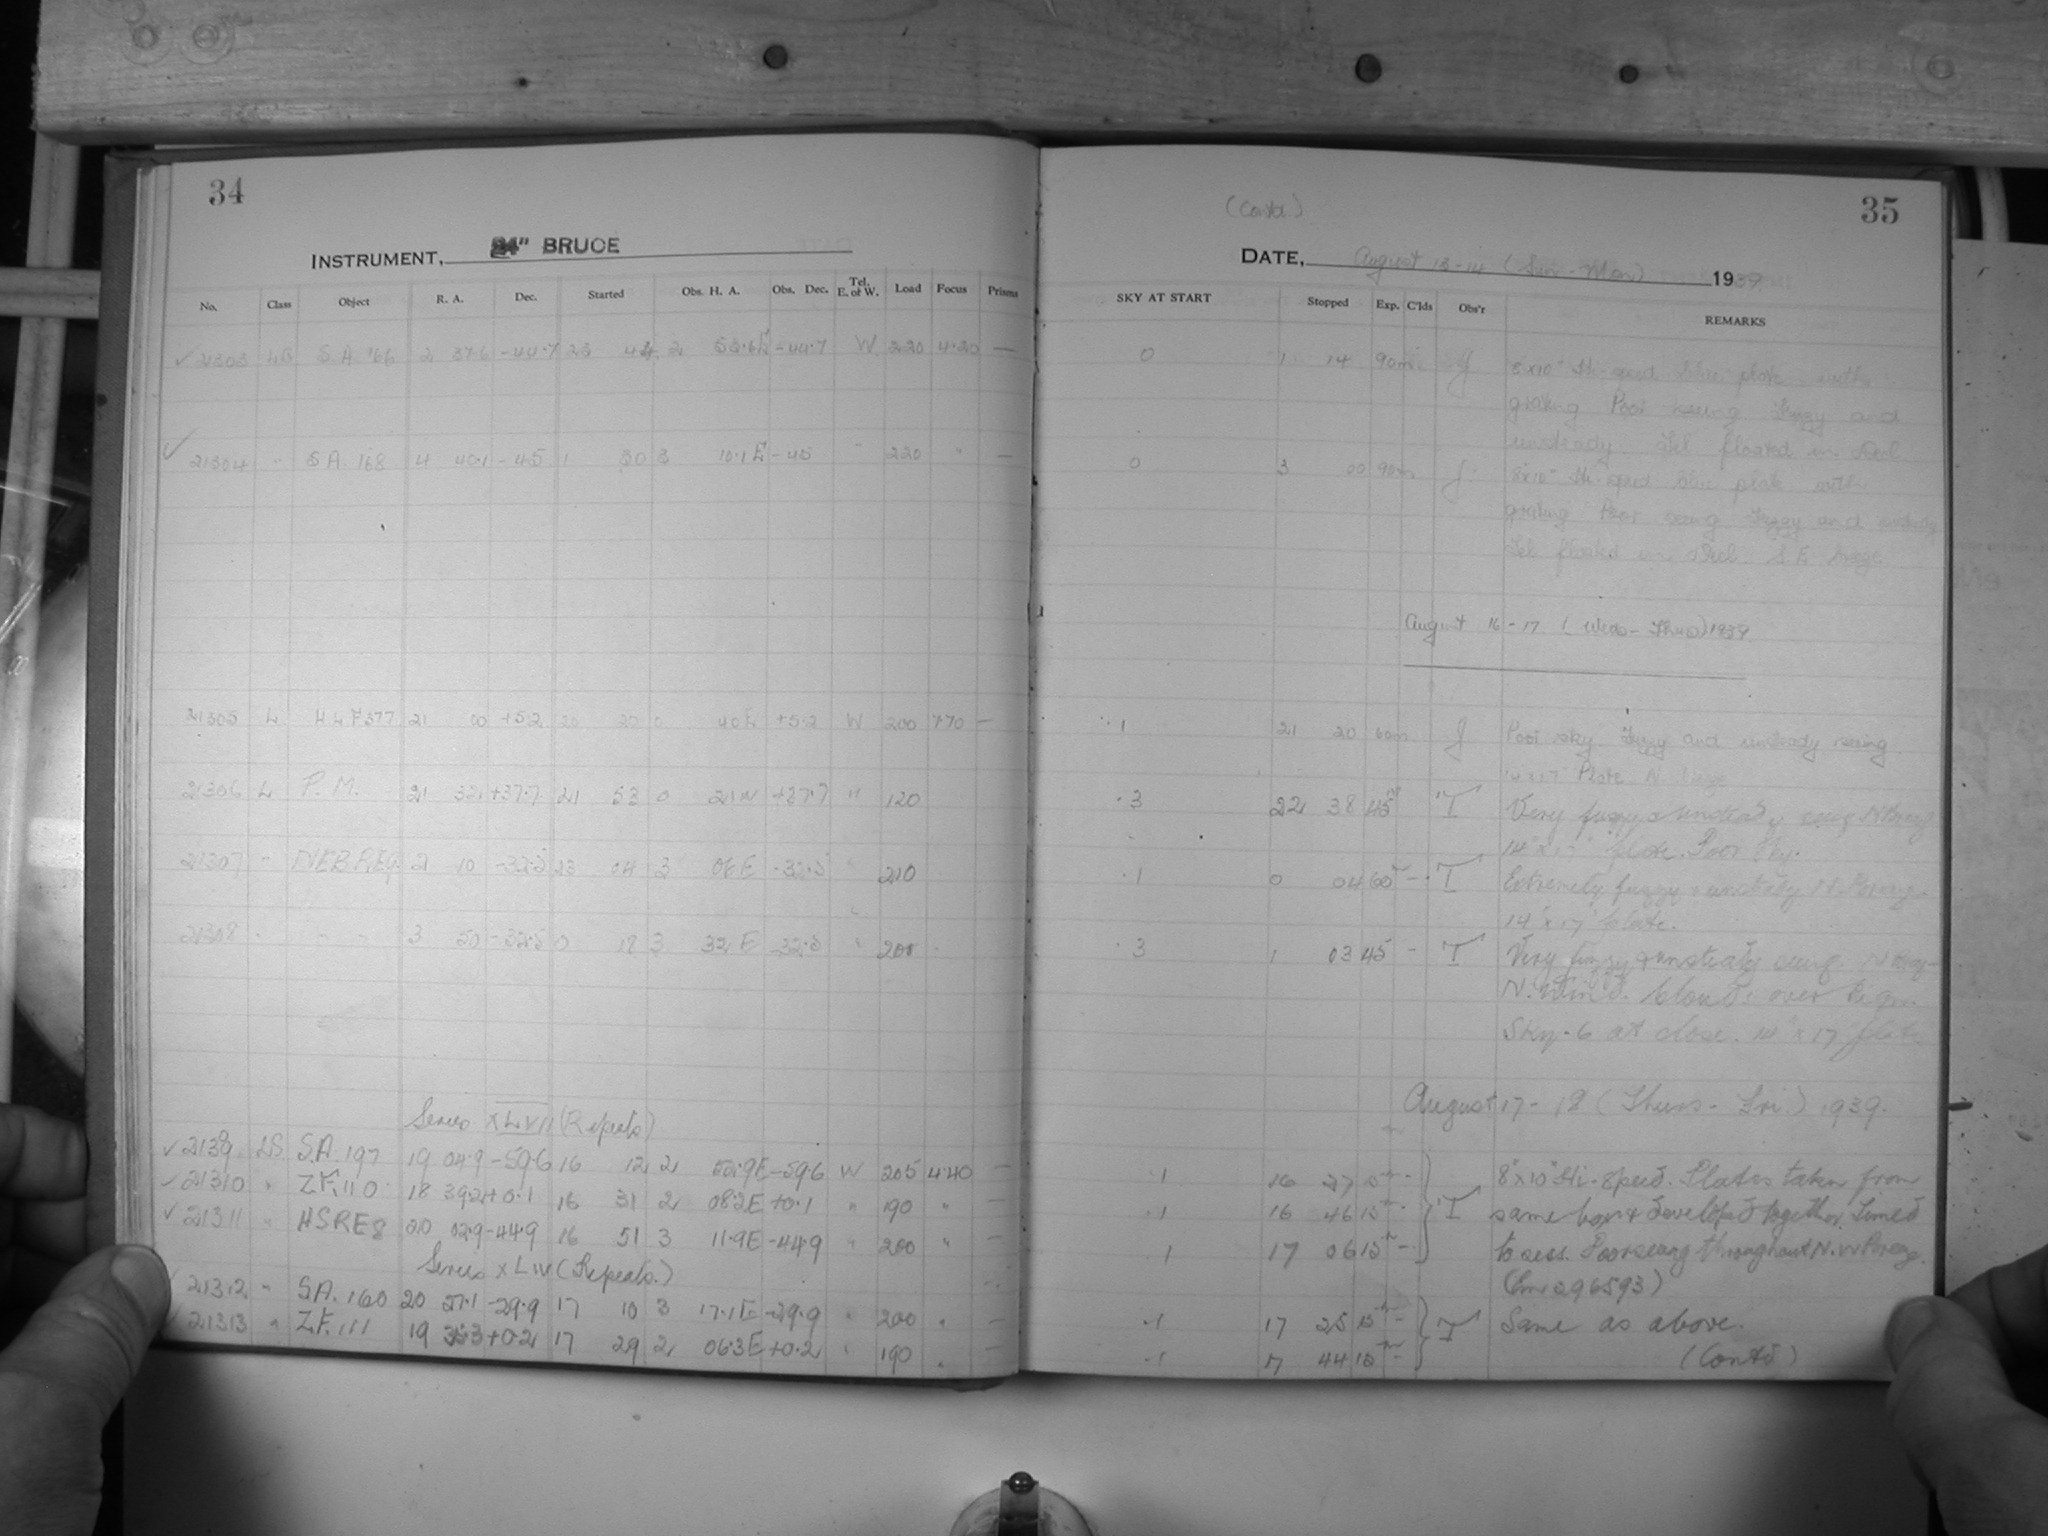 34
INSTRUMENT, 24" BRUCE
No. Class Object R. A. Dec. Started Obs. H. A. Obs. Dec. Tel. E. or W. Load Focus Prisms
✓ 21303 LS S.A. 166 2 37.6 -44.7 23 44 2 53.6E -44.7 W 220 4.20 —
✓ 21304 " S.A. 168 4 40.1 -45 1 30 3 10.1E -45 " 220 " —
21305 L H.L.F 377 21 00 +5.2 20 20 0 40E +5.2 W 200 7.70 —
21306 L P.M. 21 32 +37.7 21 53 0 21W +37.7 " 120
21307 " NEB.REG. 2 10 -32.5 23 04 3 06E -32.5 " 210
21308 " " " 3 50 -32.5 0 18 3 32E -32.5 " 200
Series XLVII (Repeats)
✓ 2139 LS S.A. 197 19 04.9 -59.6 16 12 2 52.9E -59.6 W 205 4.40 —
✓ 21310 " Z.F. 110 18 39.2 +0.1 16 31 2 08.2E +0.1 " 190 " —
✓ 21311 " HSRE8 20 02.9 -44.9 16 51 3 11.9E -44.9 " 200 " —
Series XLIV (Repeats.)
✓ 21312 " S.A. 160 20 27.1 -29.9 17 10 3 17.1E -29.9 " 200 " —
✓ 21313 " Z.F. 111 19 35.3 +0.2 17 29 2 06.3E +0.2 " 190 " —
(Contd.)
35
DATE, August 13-14 (Sun - Mon) 1939
SKY AT START Stopped Exp. C'lds Obs'r REMARKS
0 1 14 90m J 8x10" Hi-speed blue plate with
grating Poor seeing Fuzzy and
unsteady. Tel floated in Decl.
0 3 00 90m J. 8x10" Hi-speed blue plate with
grating Poor seeing Fuzzy and unsteady
Tel floated in Decl. S.E. breeze
August 16-17 (Weds-Thurs) 1939
.1 21 20 60m J Poor sky. Fuzzy and unsteady seeing.
14x17 Plate N. breeze
.3 22 38 45m T Very fuzzy & unsteady seeing N. Breeze
14"x17" plate. Poor Sky.
.1 0 04 60m - T Extremely fuzzy & unsteady N. Breeze
14"x17" plate.
.3 1 03 45 - T Very fuzzy & unsteady seeing.
N. Wind. Clouds over Region.
Sky .6 at close. 14"x17" plate
August 17-18 (Thurs - Fri) 1939.
.1 16 27 15m - 8"x10" Hi-Speed. Plates taken from
.1 16 46 15m - T same box & developed together. Timed
.1 17 06 15m - to secs. Poor seeing throughout N.W Breeze.
(Em 296593)
.1 17 25 15m - T Same as above.
.1 17 44 15m - (Contd)